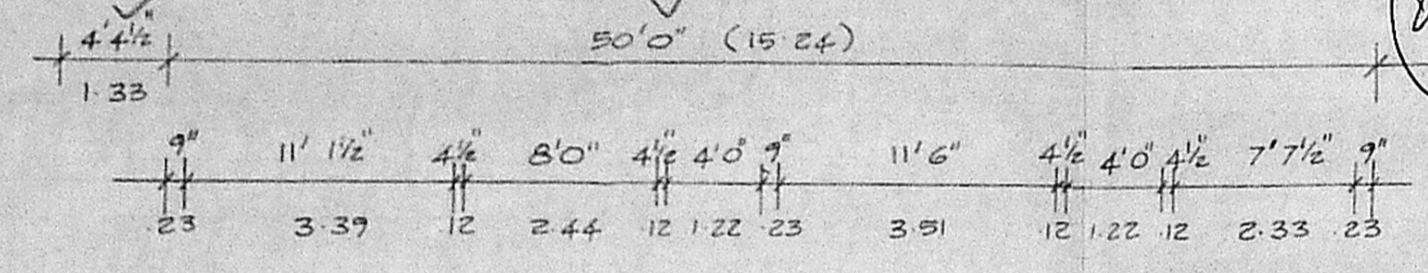 4'4½" 50'0" (15·24)
1·33
9" 11' 1½" 4½" 8'0" 4½" 4'0" 9" 11'6" 4½" 4'0" 4½" 7'7½" 9"
·23 3·39 ·12 2·44 ·12 1·22 ·23 3·51 ·12 1·22 ·12 2·33 ·23